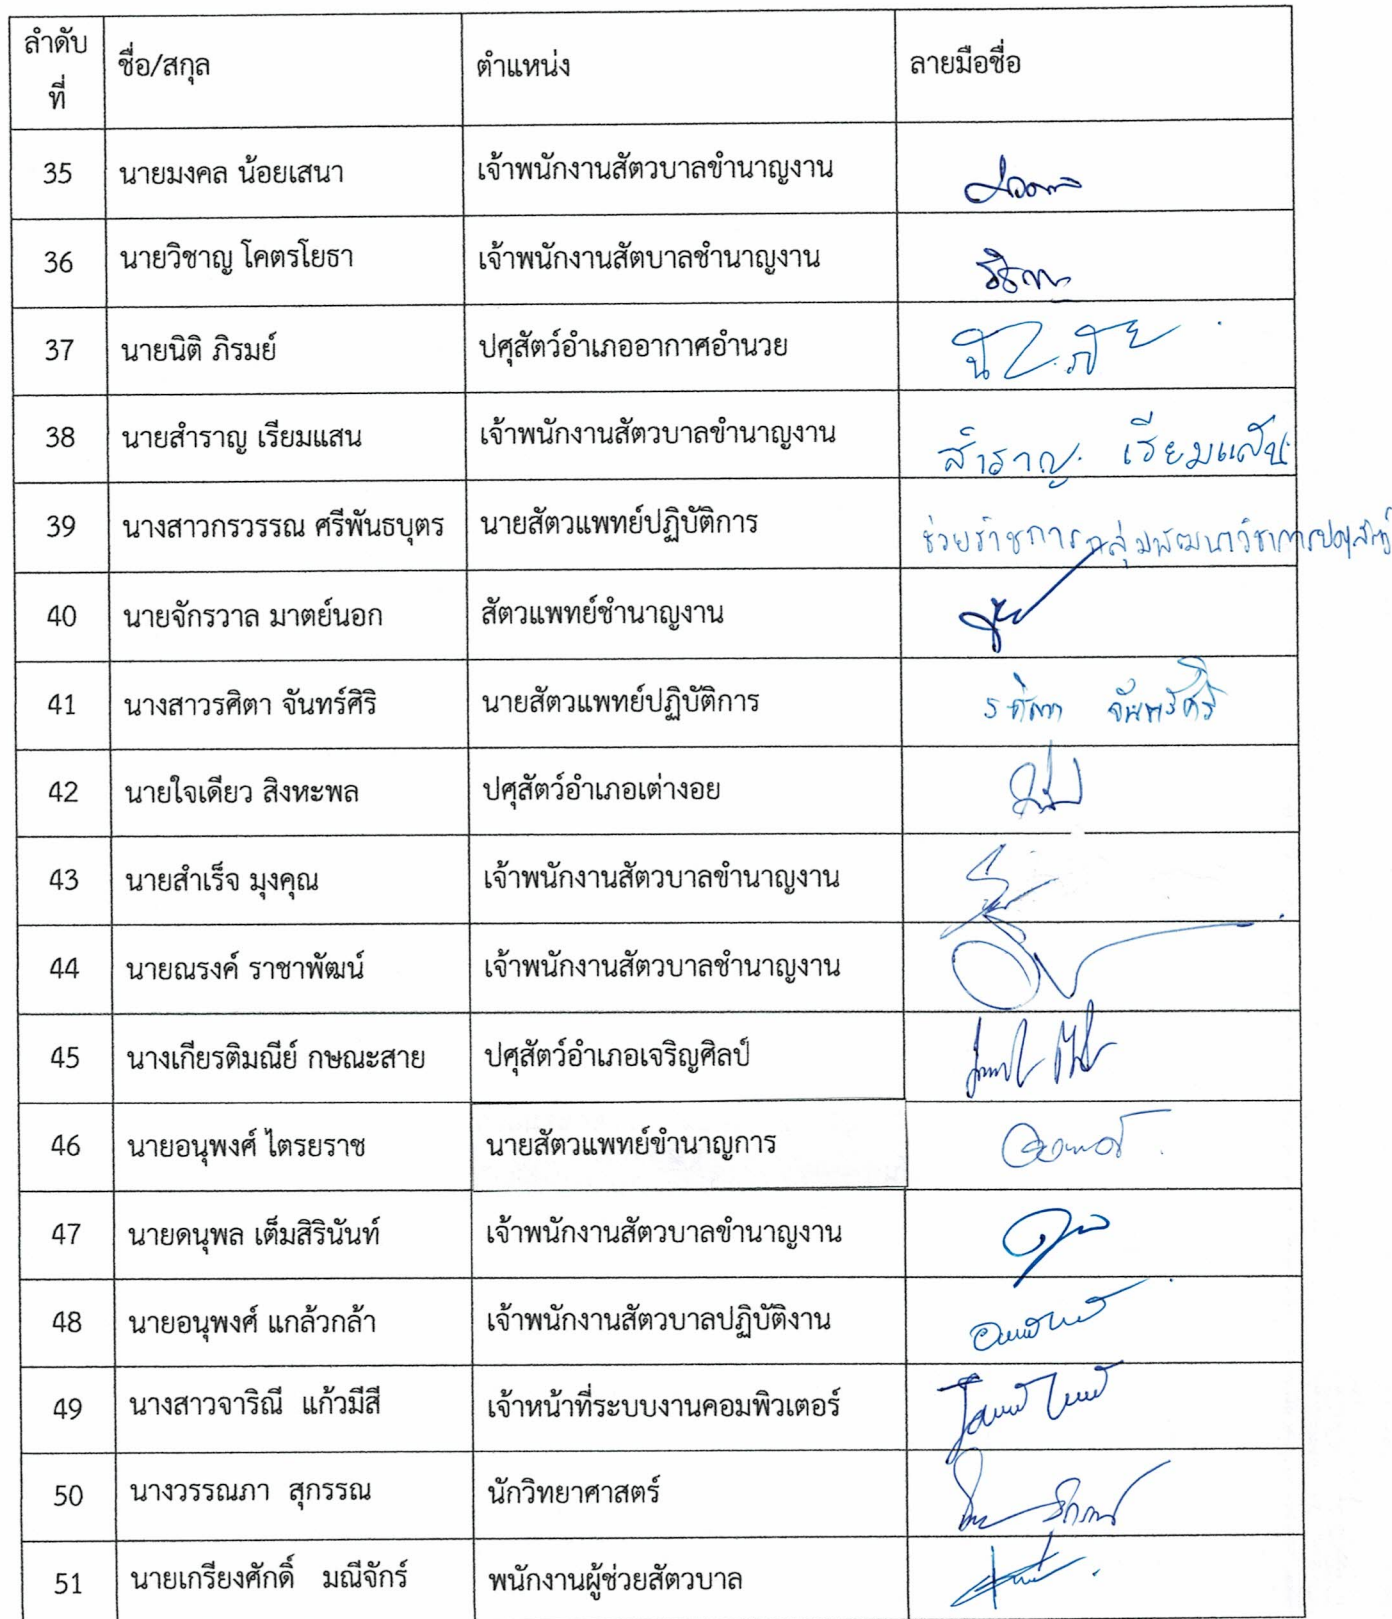 ลำดับ
ที่
ชื่อ/สกุล
ตำแหน่ง
ลายมือชื่อ
35 นายมงคล น้อยเสนา เจ้าพนักงานสัตวบาลขำนาญงาน
36 นายวิชาญ โคตรโยธา เจ้าพนักงานสัตบาลชำนาญงาน
37 นายนิติ ภิรมย์ ปศุสัตว์อำเภออากาศอำนวย
38 นายสำราญ เรียมแสน เจ้าพนักงานสัตวบาลขำนาญงาน สำราญ เรียมแสน
39 นางสาวกรวรรณ ศรีพันธบุตร นายสัตวแพทย์ปฏิบัติการ ช่วยราชการกลุ่มพัฒนาวิชาการปศุสัตว์
40 นายจักรวาล มาตย์นอก สัตวแพทย์ชำนาญงาน
41 นางสาวรศิตา จันทร์ศิริ นายสัตวแพทย์ปฏิบัติการ รศิตา จันทร์ศิริ
42 นายใจเดียว สิงหะพล ปศุสัตว์อำเภอเต่างอย
43 นายสำเร็จ มุงคุณ เจ้าพนักงานสัตวบาลขำนาญงาน
44 นายณรงค์ ราชาพัฒน์ เจ้าพนักงานสัตวบาลชำนาญงาน
45 นางเกียรติมณีย์ กษณะสาย ปศุสัตว์อำเภอเจริญศิลป์
46 นายอนุพงศ์ ไตรยราช นายสัตวแพทย์ขำนาญการ
47 นายดนุพล เต็มสิรินันท์ เจ้าพนักงานสัตวบาลขำนาญงาน
48 นายอนุพงศ์ แกล้วกล้า เจ้าพนักงานสัตวบาลปฏิบัติงาน
49 นางสาวจาริณี แก้วมีสี เจ้าหน้าที่ระบบงานคอมพิวเตอร์
50 นางวรรณภา สุกรรณ นักวิทยาศาสตร์
51 นายเกรียงศักดิ์ มณีจักร์ พนักงานผู้ช่วยสัตวบาล